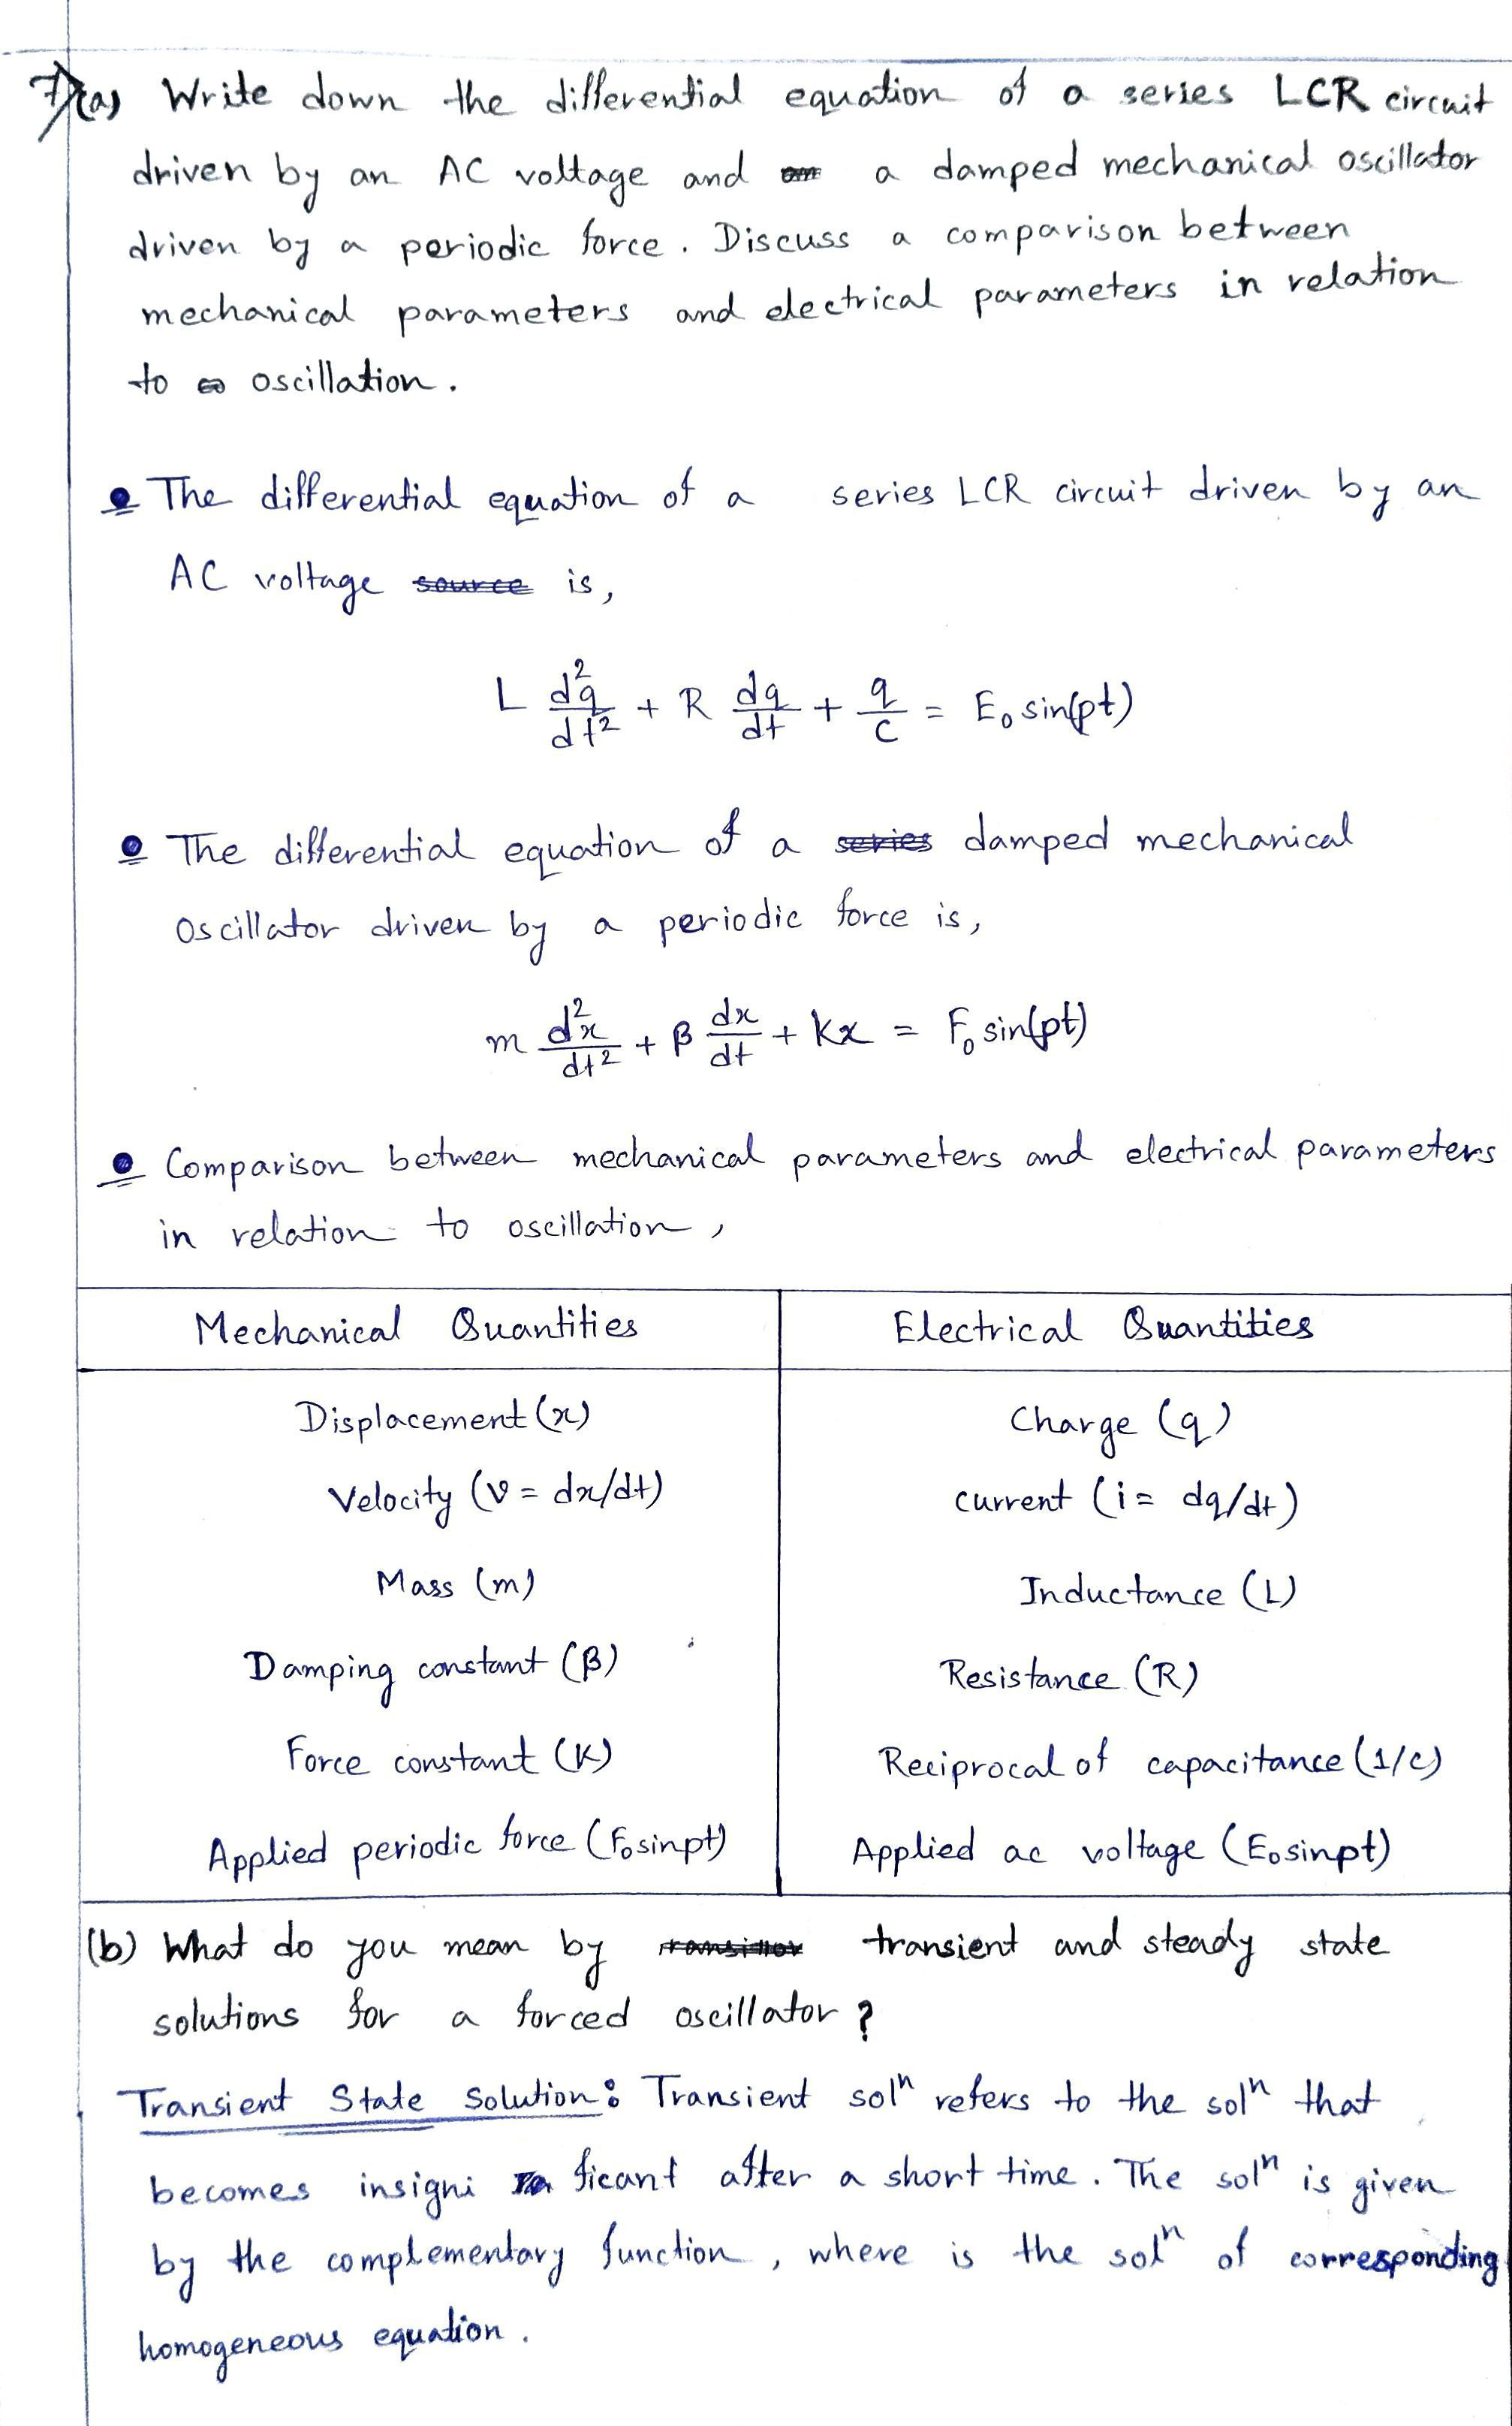 7)(a) Write down the differential equation of a series LCR circuit
driven by an AC voltage and a damped mechanical oscillator
driven by a periodic force. Discuss a comparison between
mechanical parameters and electrical parameters in relation
to oscillation.
The differential equation of a series LCR circuit driven by an
AC voltage source is,
L d²q/dt² + R dq/dt + q/C = E₀ sin(pt)
The differential equation of a series damped mechanical
Oscillator driven by a periodic force is,
m d²x/dt² + β dx/dt + Kx = F₀ sin(pt)
Comparison between mechanical parameters and electrical parameters
in relation to oscillation,
Mechanical Quantities Electrical Quantities
Displacement (x) Charge (q)
Velocity (v = dx/dt) current (i = dq/dt)
Mass (m) Inductance (L)
Damping constant (β) Resistance (R)
Force constant (K) Reciprocal of capacitance (1/c)
Applied periodic force (F₀sinpt) Applied ac voltage (E₀sinpt)
(b) What do you mean by transient and steady state
solutions for a forced oscillator?
Transient State Solution: Transient solⁿ refers to the solⁿ that
becomes insigni ficant after a short time. The solⁿ is given
by the complementary function, where is the solⁿ of corresponding
homogeneous equation.